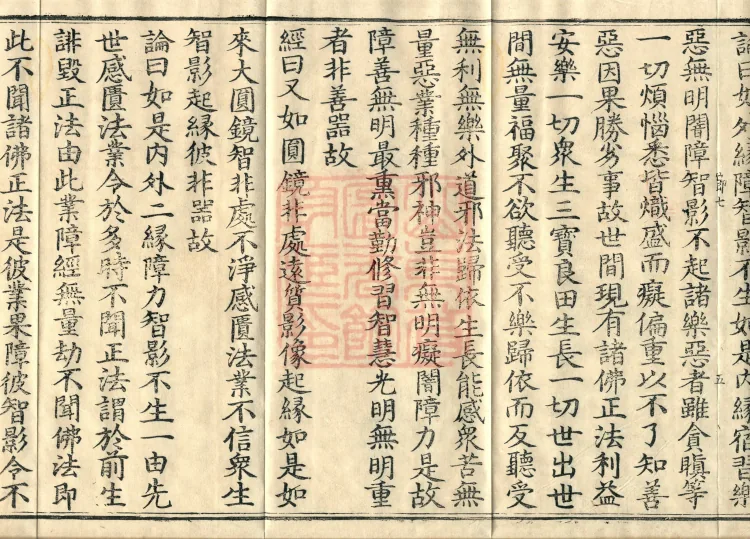 論曰如外緣障智影不生如是內緣宿習樂
惡無明闇障智影不起諸樂惡者雖貪瞋等
一切煩惱悉皆熾盛而癡偏重以不了知善
惡因果勝劣事故世間現有諸佛正法利益
安樂一切衆生三寶良田生長一切世出世
間無量福聚不欲聽受不樂歸依而反聽受
無利無樂外道邪法歸依生長能感衆苦無
量惡業種種邪神豈非無明癡闇障力是故
障善無明最重當勤修習智慧光明無明重
者非善器故
經曰又如圓鏡非處遠質影像起緣如是如
來大圓鏡智非處不淨感匱法業不信衆生
智影起緣彼非器故
論曰如是內外二緣障力智影不生一由先
世感匱法業今於多時不聞正法謂於前生
誹毀正法由此業障經無量劫不聞佛法即
此不聞諸佛正法是彼業果障彼智影令不